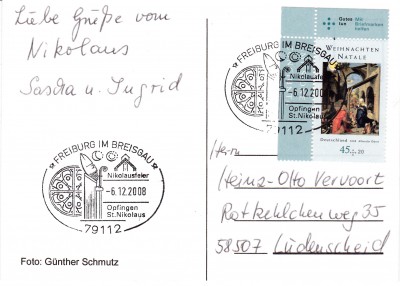 Liebe Grüße vom
Nikolaus
Sascha u. Ingrid
FREIBURG IM BREISGAU
Nikolausfeier
-6.12.2008
Opfingen
St.Nikolaus
79112
Foto: Günther Schmutz
Gutes tun
Mit Briefmarken helfen
FREIBURG IM BREISGAU
Nikolausfeier
-6.12.2008
Opfingen
St.Nikolaus
79112
WEIHNACHTEN
NATALE
Deutschland
45+20
Herrn
Heinz-Otto Vervoort
Rotkehlchenweg 35
58507 Lüdenscheid